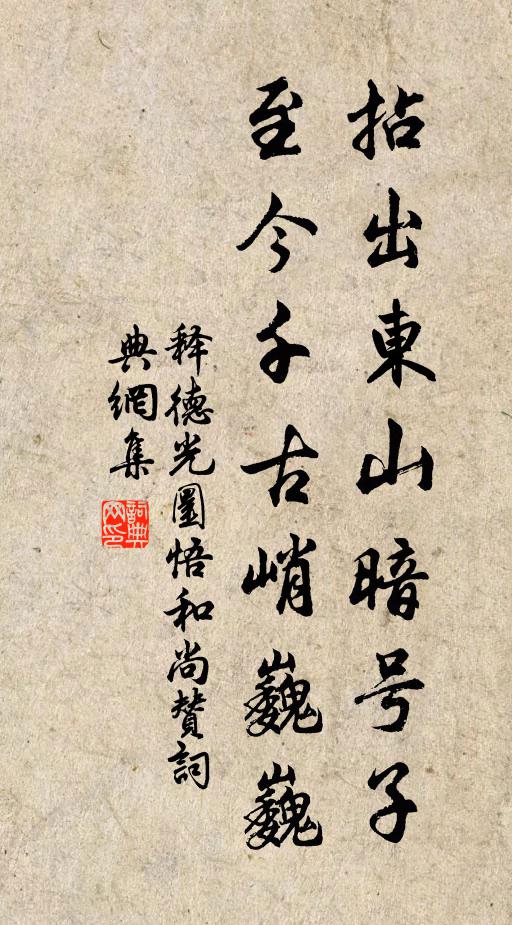 拈出東山暗号子
至今千古峭巍巍
释德光圜悟和尚赞詞
典網集
詞典網印